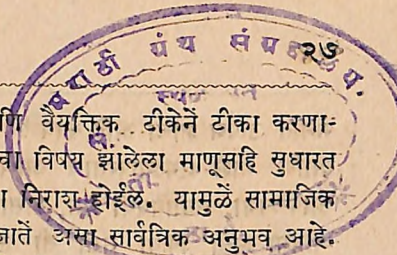 मराठी ग्रंथ संग्रहालय.
२७
णि वैयक्तिक टीकेनें टीका करणा-
चा विषय झालेला माणूसहि सुधारत
ा निराश होईल. यामुळें सामाजिक
जातें असा सार्वत्रिक अनुभव आहे.